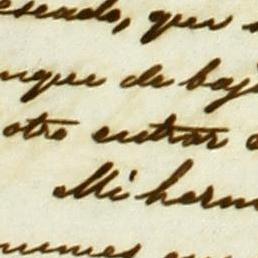 eseado, que
nque de baj
otro entrar
Mi herm